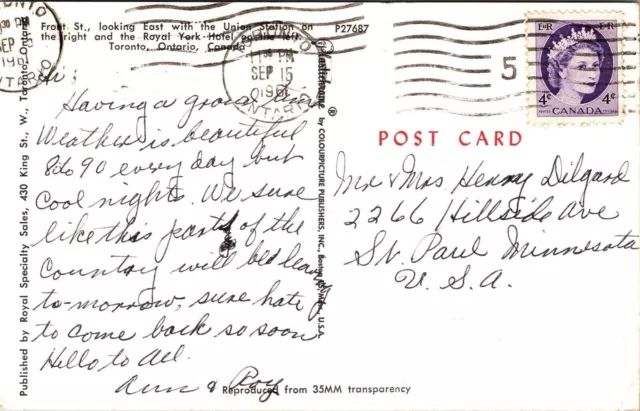 Front St., looking East with the Union Station on
the right and the Royal York Hotel on the left.
Toronto, Ontario, Canada
P27687
TORONTO
30 PM
SEP
196
ONTARIO
PM
SEP 15
196
ONTARIO
5
EIIR EIIR
4¢ 4¢
CANADA
POST CARD
Hi:
Having a grand time
Weather is beautiful
80 to 90 every day but
cool nights. We sure
like this part of the
country will be leaving
to-morrow, sure hate
to come back so soon
Hello to all.
Ann & Roy
Mr & Mrs Henry Dilgard
2266 Hillside Ave
St. Paul Minnesota
U. S. A.
Published by Royal Specialty Sales, 430 King St., W., Toronto, Ontario
Plastichrome ® by COLOURPICTURE PUBLISHERS, INC., Boston, Mass., U.S.A.
Reproduced from 35MM transparency